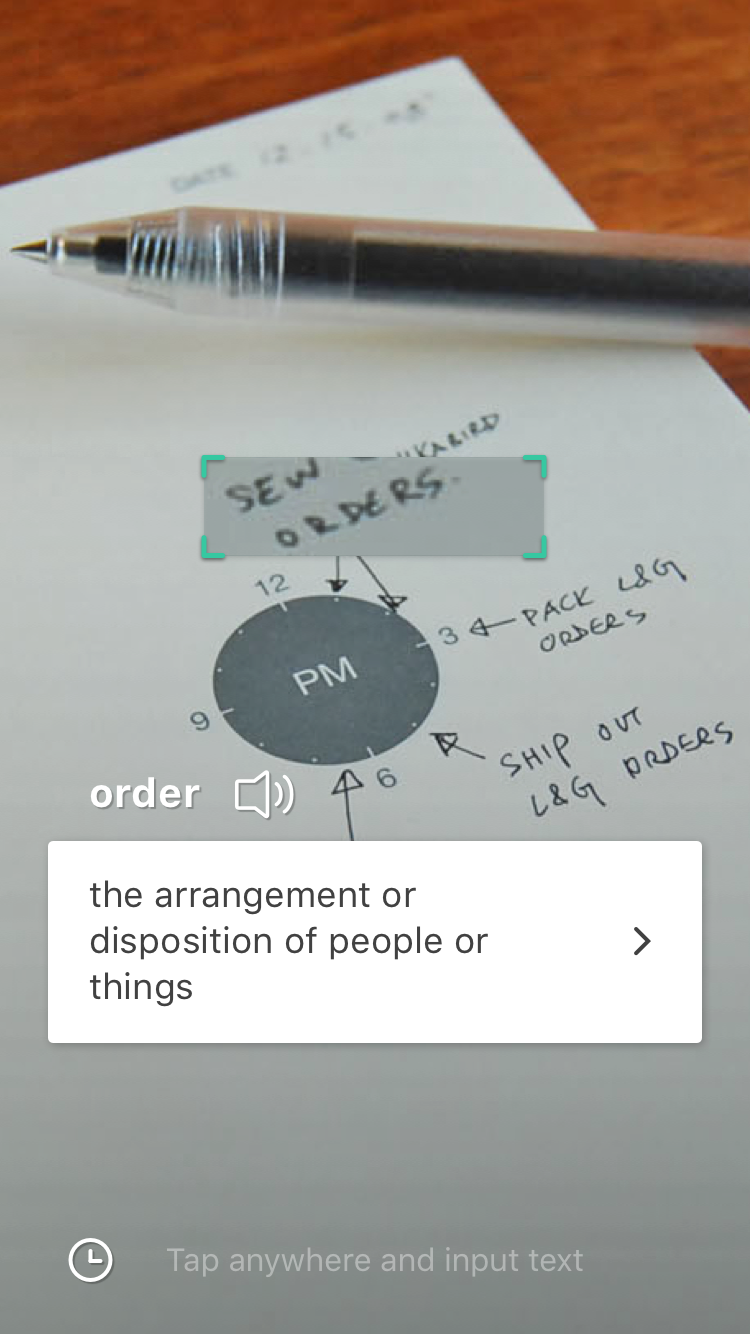 DATE 12.15.
SEW
ORDERS.
12
3
PACK L&G
ORDERS
PM
9
6
SHIP OUT
L&G ORDERS
order
the arrangement or
disposition of people or
things
Tap anywhere and input text